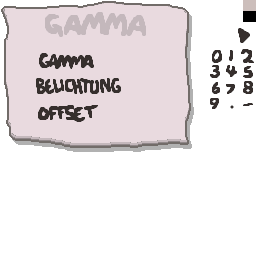 GAMMA
GAMMA
BELICHTUNG
OFFSET
0 1 2
3 4 5
6 7 8
9 . -